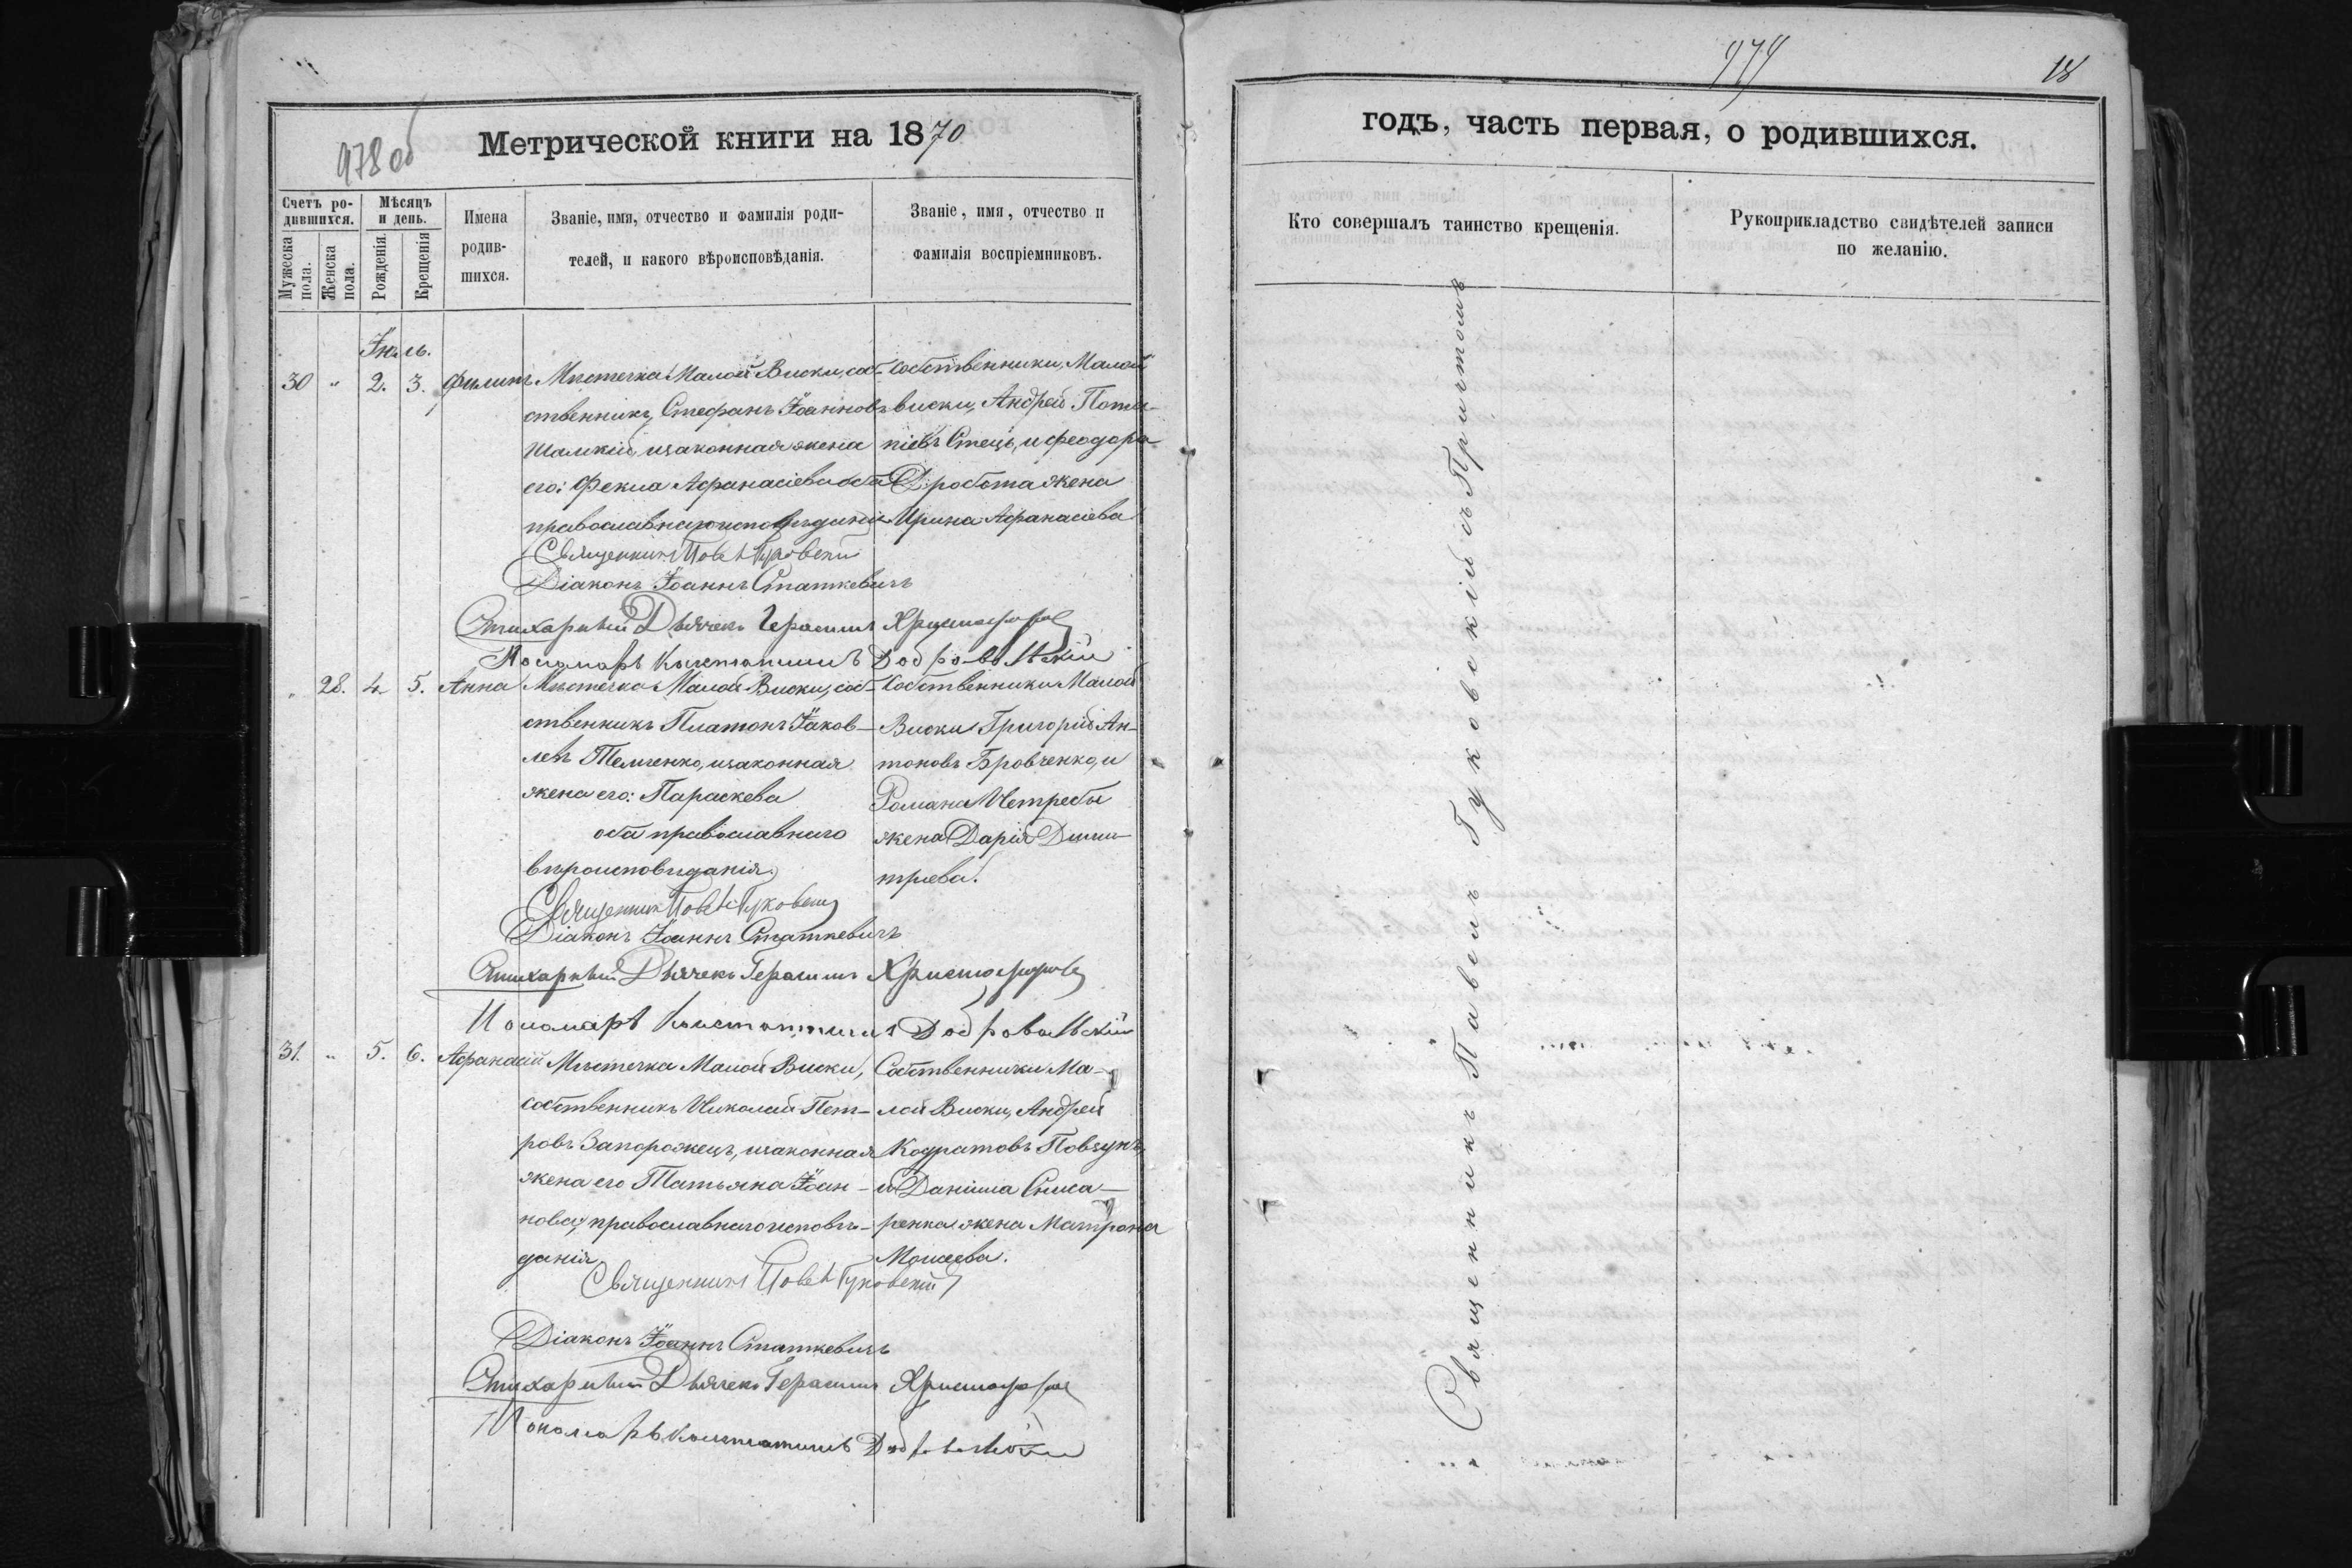 978 об
Метрической книги на 1870
Счетъ родившихся.
Мѣсяцъ и день.
Мужеска пола.
Женска пола.
Рожденія.
Крещенія
Имена родившихся.
Званіе, имя, отчество и фамилія родителей, и какого вѣроисповѣданія.
Званіе, имя, отчество и фамилія воспріемниковъ.
Іюль.
30 " 2. 3. Филипъ
Мѣстечка Малой Виски, соб-
ственникъ, Стефанъ Іоанновъ
и законная жена
его: Фекла Афанасіева оба
православнаго исповѣданія
Собственники, Малой
Виски, Андрей Пота-
піевъ Стець, и Феодора
Дробота жена
Ирина Афанасіева
Священникъ Павелъ Гуковскій
Діаконъ Іоаннъ Статкевичъ
Стихарный Дьячекъ Герасимъ Христофоров
Пономарь Константинъ Добровольскій
28. 4. 5. Анна
Мѣстечка Малой Виски, соб-
ственникъ Платонъ Іаков-
левъ Темченко, и законная
жена его: Параскева
оба православнаго
вѣроисповѣданія
Собственники Малой
Виски Григорій Ан-
тоновъ Бровченко, и
Романа Нетребы
жена Дарія Дими-
тріева.
Священникъ Павелъ Гуковскій
Діаконъ Іоаннъ Статкевичъ
Стихарный Дьячекъ Герасимъ Христофоров
Пономарь Константинъ Добровольскій
31. " 5. 6. Афанасій
Мѣстечка Малой Виски,
собственникъ Николай Пет-
ровъ Запорожецъ, и законная
жена его Татьяна Іоан-
нова, православнаго исповѣ-
данія
Собственники Ма-
лой Виски, Андрей
Кодратовъ Повзунъ,
и Даніила Слюса-
ренка жена Матрона
Моисеева.
Священникъ Павелъ Гуковскій
Діаконъ Іоаннъ Статкевичъ
Стихарный Дьячекъ Герасимъ Христофоров
Пономарь Константинъ Добровольскій
979
18
годъ, часть первая, о родившихся.
Кто совершалъ таинство крещенія.
Рукоприкладство свидѣтелей записи по желанію.
Священникъ Павелъ Гуковскій съ Причтомъ